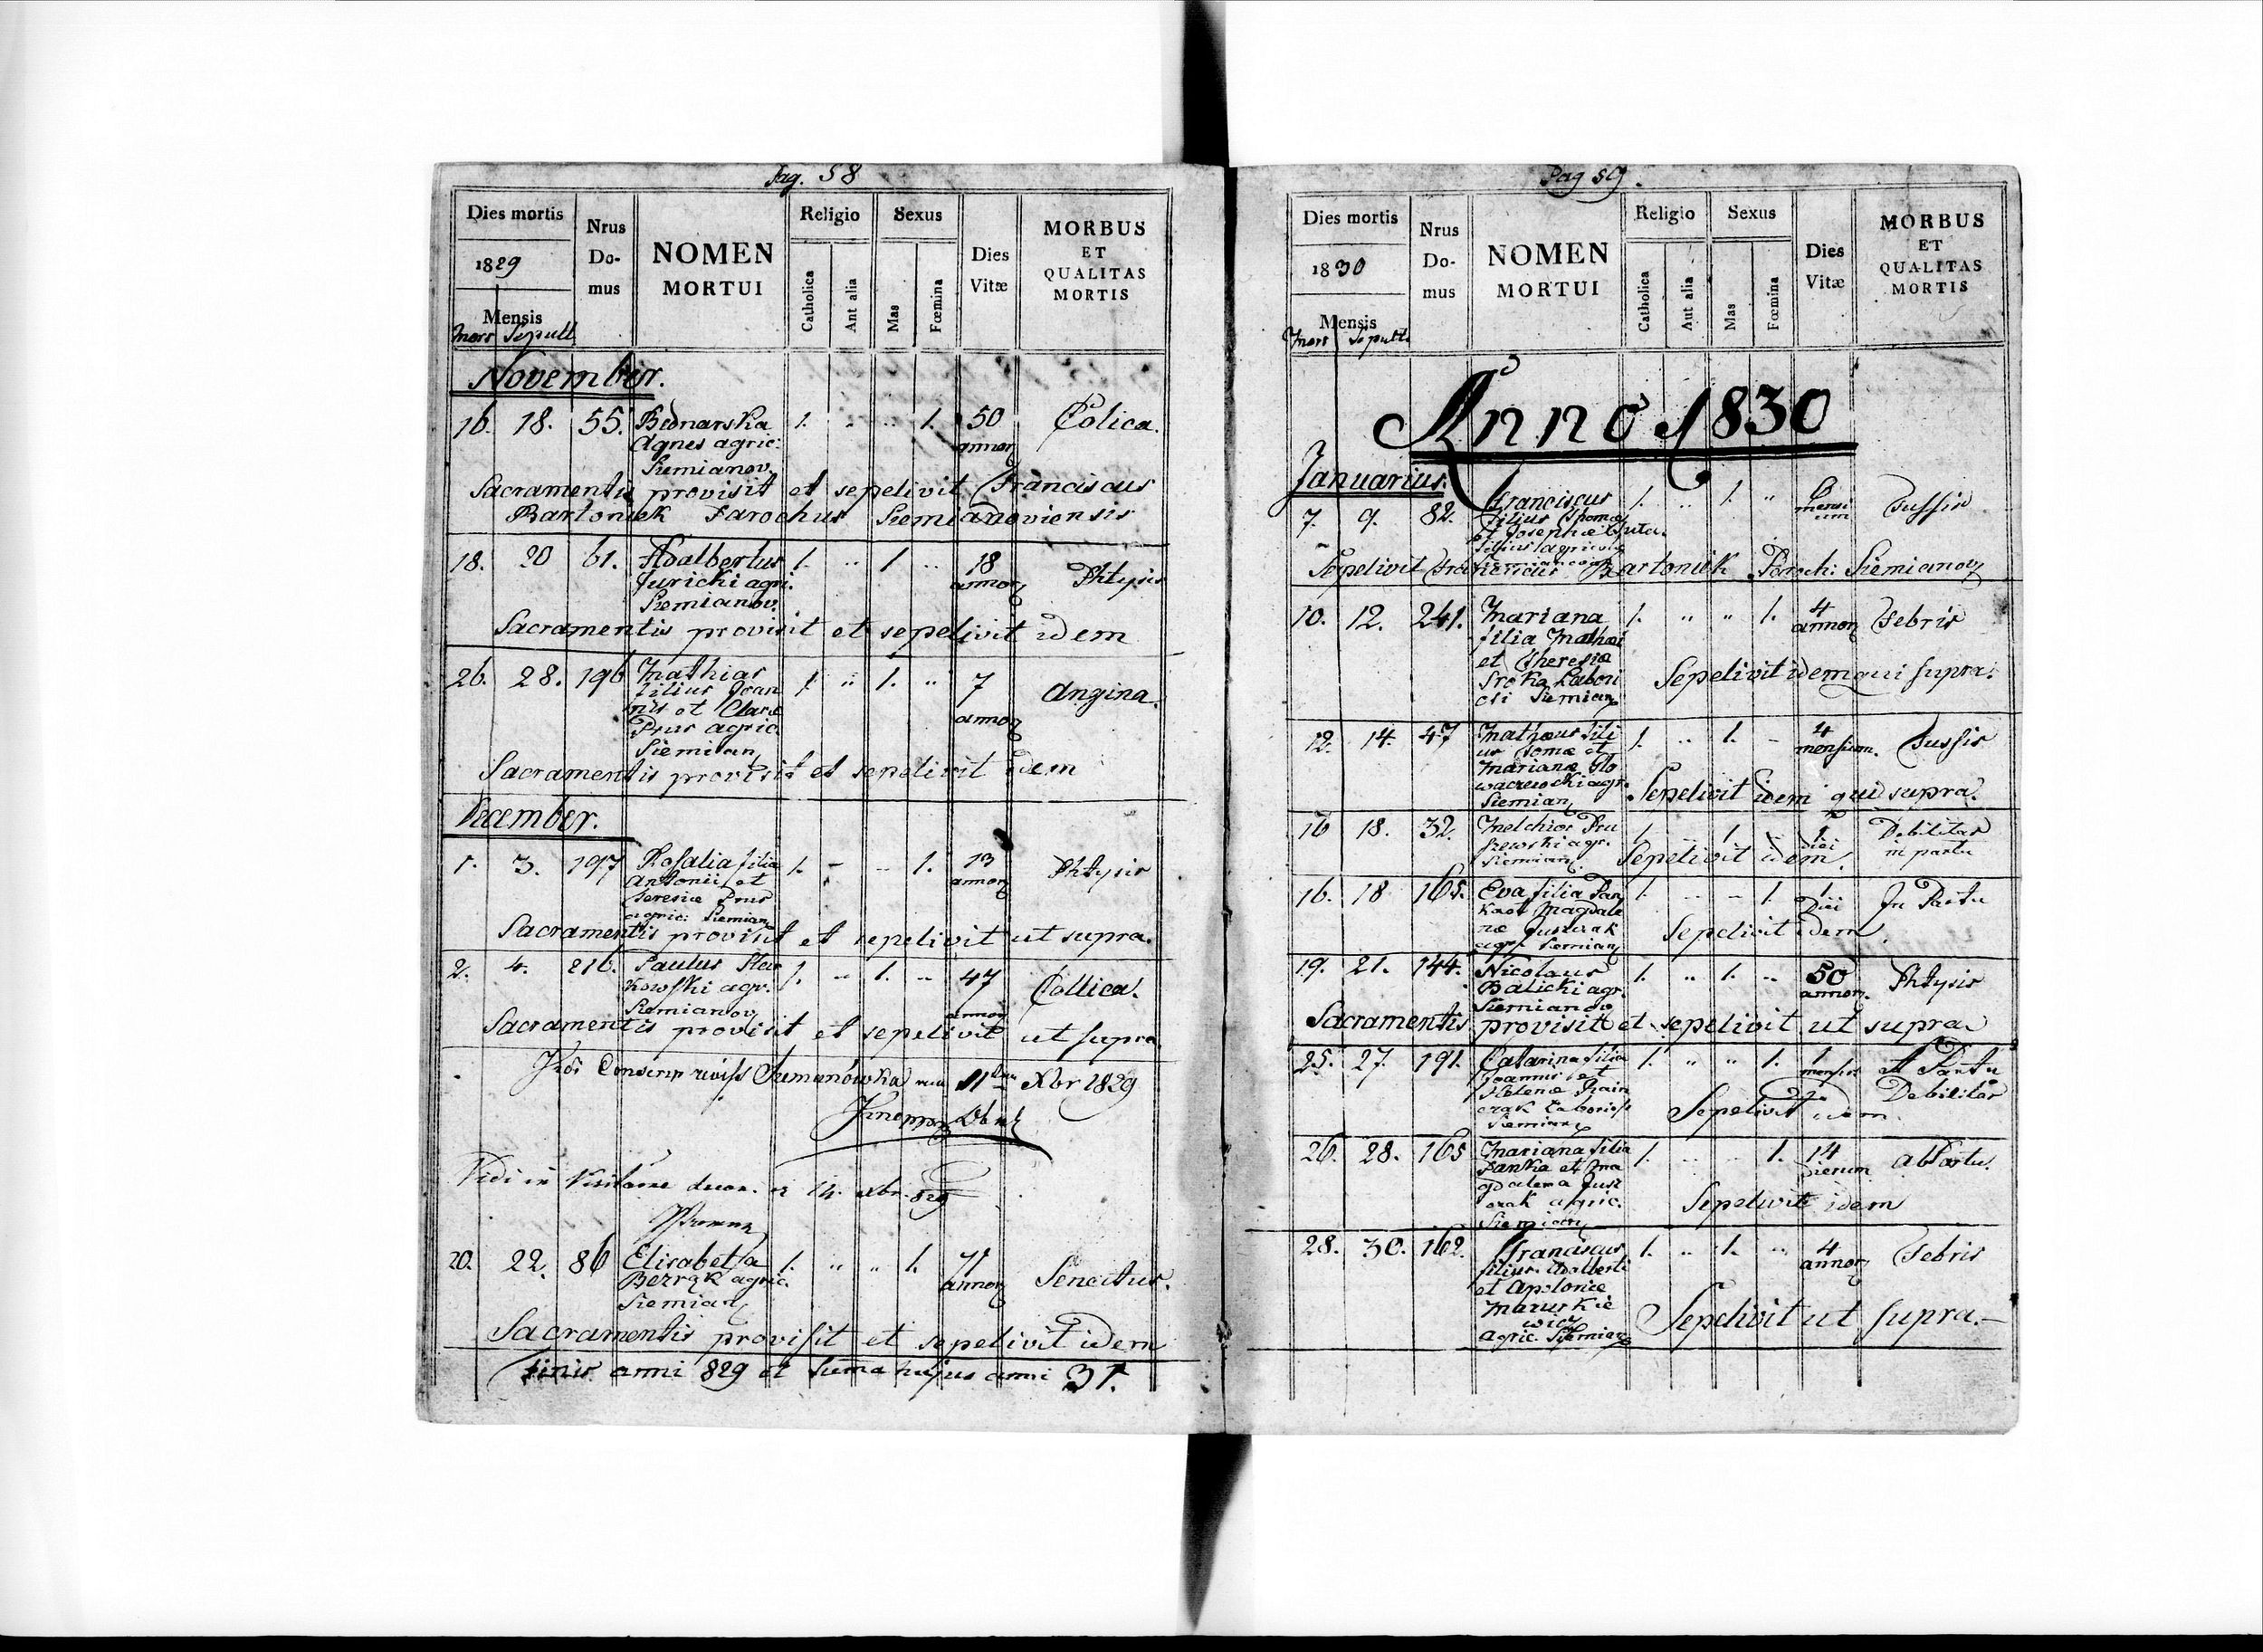 Pag. 58
Dies mortis
1829
Mensis
Mors Sepult
Nrus Do- mus
NOMEN MORTUI
Religio
Catholica
Aut alia
Sexus
Mas
Fœmina
Dies Vitæ
MORBUS ET QUALITAS MORTIS
November.
16. 18. 55. Bednarska 1. " " 1. 50 annor Colica.
Agnes agric:
Siemianov.
Sacramentis provisit et sepelivit Franciscus
Bartoniek Parochus Siemianoviensis
18. 20 61. Adalbertus 1. " 1 " 18 annor Phtysis
Juricki agri.
Siemianov.
Sacramentis provisit et sepelivit idem
26. 28. 196 Mathias 1. " 1. " 7 annor Angina.
filius Joan
nis et Claræ
Prus agric.
Siemian
Sacramentis provisit et sepelivit idem
December.
1. 3. 197 Rosalia filia 1. - " 1. 13 annor Phtysis
Antonii et
Teresiæ Prus
agric: Siemian
Sacramentis provisit et sepelivit ut supra.
2. 4. 216. Paulus 1. " 1. " 47 annor Collica.
kowski agr.
Siemianov
Sacramentis provisit et sepelivit ut supra.
Xbr 1829
Vidi in
20. 22. 86 Elisabetha 1. " " 1. 71 annor Senectus.
Bezrąk agric.
Siemian
Sacramentis provisit et sepelivit idem
Finis anni 829 et Suma hujus anni 31.
Pag 59.
Dies mortis
1830
Mensis
Mors Sepult
Nrus Do- mus
NOMEN MORTUI
Religio
Catholica
Aut alia
Sexus
Mas
Fœmina
Dies Vitæ
MORBUS ET QUALITAS MORTIS
Anno 1830
Januarius.
7. 9. 82. Franciscus 1. " 1. " 6 mensium Tussis
filius Thomæ
et Josephæ
Sepelivit Franciscus Bartoniek Paroch: Siemianov
10. 12. 241. Mariana 1. " " 1. 4 annor Febris
filia Mathæi
et Theresiæ
Sroka Labori
osi Siemian
Sepelivit idem qui supra.
12. 14. 47 Mathæus fili 1. " 1. - 4 mensium. Tussis
us Tomæ et
Marianæ Glo
waczewski agr.
Siemian
Sepelivit idem qui supra.
16 18. 32. Melchior Pru 1. " 1. " 1. diei Debilitas in partu
szewski agr.
Siemian.
Sepelivit idem
16. 18 165. Eva filia Pan 1. " - 1. 1 Diei In Partu
kaot Magdale
næ Juszczak
agr. Siemian
Sepelivit idem
19. 21. 144. Nicolaus 1. " 1. " 50 annor. Phtysis
Balicki agr.
Siemianov
Sacramentis provisit et sepelivit ut supra
25. 27. 191. Catarina filia 1. " " 1. 1 mensis A Partu Debilitas
Joannis et
Helenæ
Siemian
Sepelivit idem
26. 28. 165 Mariana filia 1. " " 1. 14 Dierum ab Partu.
Panka et Ma
gdalena Jusz
czak agric.
Siemian
Sepelivit idem
28. 30. 162. Franciscus 1. " 1. " 4 annor Febris
filius Adalberti
et Apoloniæ
Mazurkie
wicz
agric. Siemian
Sepelivit ut supra.-